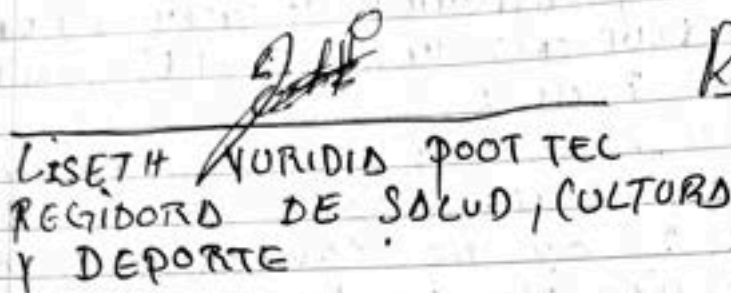 LISETH NURIDIA POOT TEC
REGIDORA DE SALUD, CULTURA
Y DEPORTE